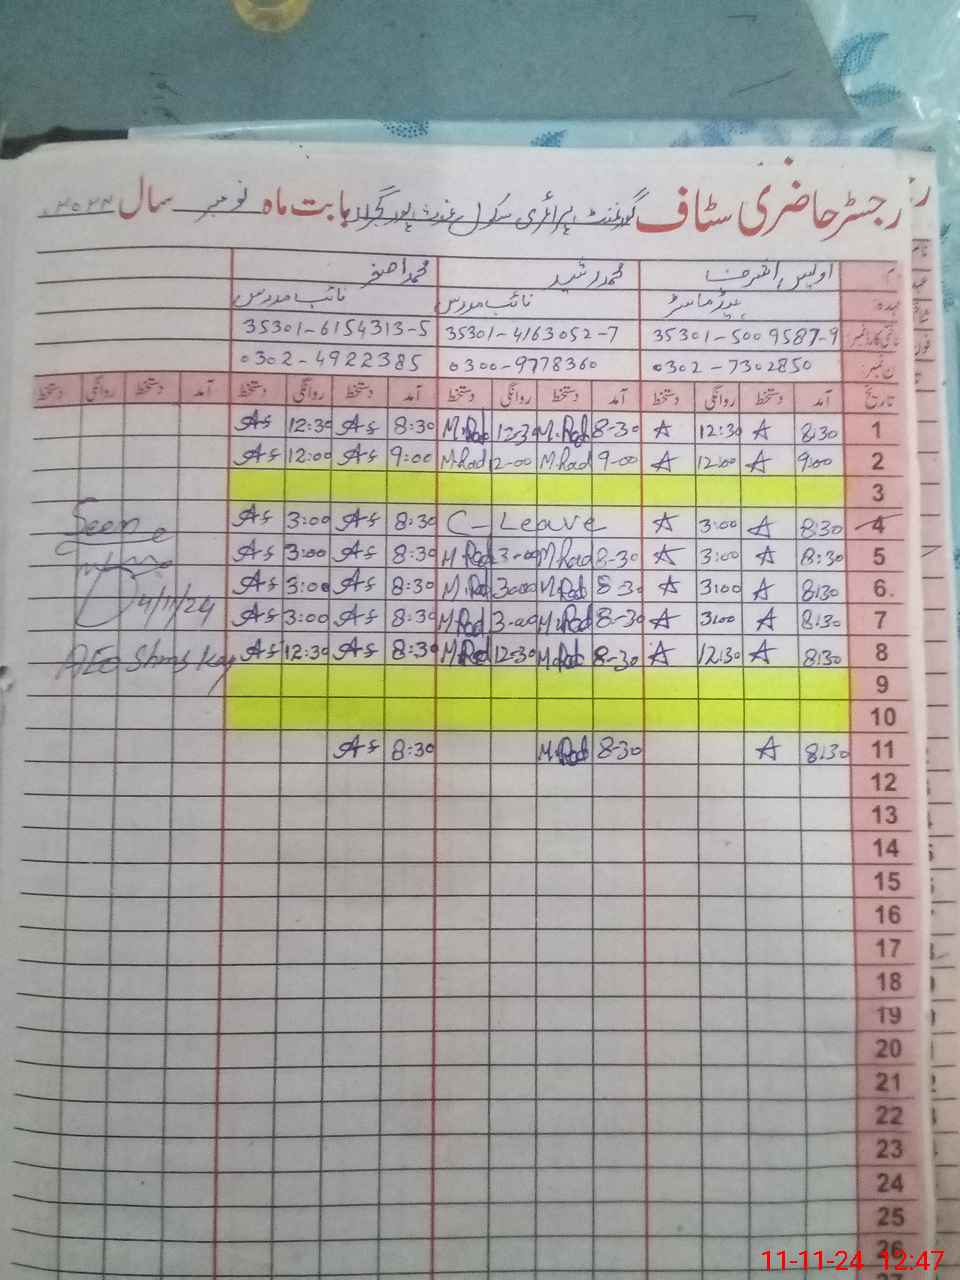 رجسٹر حاضری سٹاف گورنمنٹ پرائمری سکول غوث پور گجراں بابت ماہ نومبر سال ۲۰۲۴
محمد رشید محمد اصغر
عہدہ ہیڈ ماسٹر نائب مدرس نائب مدرس
35301-5009587-9 35301-4163052-7 35301-6154313-5
0302-7302850 0300-9778360 0302-4922385
تاریخ آمد دستخط روانگی دستخط آمد دستخط روانگی دستخط آمد دستخط روانگی دستخط آمد دستخط روانگی دستخط
1 8:30 A 12:30 A 8-30 M.Rad 12-30 M.Rad 8:30 As 12:30 As
2 9:00 A 12:00 A 9-00 M.Rad 12-00 M.Rad 9:00 As 12:00 As
3
4 8:30 A 3:00 A C-Leave 8:30 As 3:00 As Seen
5 8:30 A 3:00 A 8-30 M.Rad 3-00 M.Rad 8:30 As 3:00 As
6 8:30 A 3:00 A 8-30 M.Rad 3-00 M.Rad 8:30 As 3:00 As 4/11/24
7 8:30 A 3:00 A 8-30 M.Rad 3-00 M.Rad 8:30 As 3:00 As
8 8:30 A 12:30 A 8-30 M.Rad 12-30 M.Rad 8:30 As 12:30 As AEO
9
10
11 8:30 A 8-30 M.Rad 8:30 As
12
13
14
15
16
17
18
19
20
21
22
23
24
25
26
11-11-24 12:47